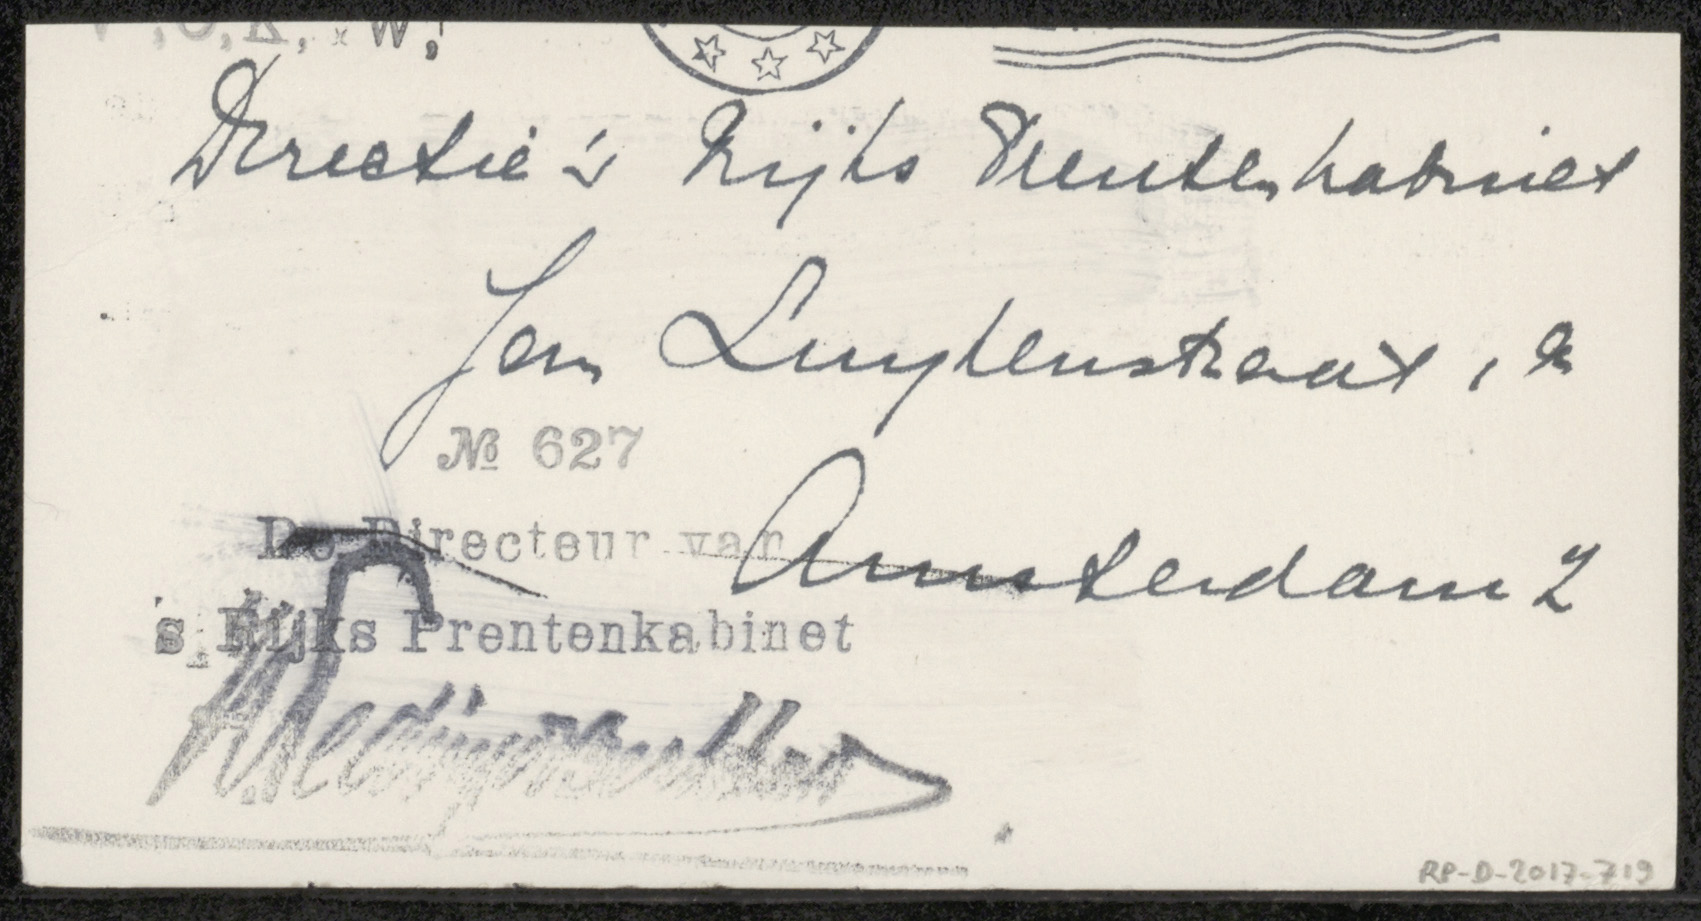 W,
Directie 's Rijks Prentenkabinet
Jan Luykenstraat, 
№ 627
Amsterdam Z
De Directeur van
's Rijks Prentenkabinet
RP-D-2017-719